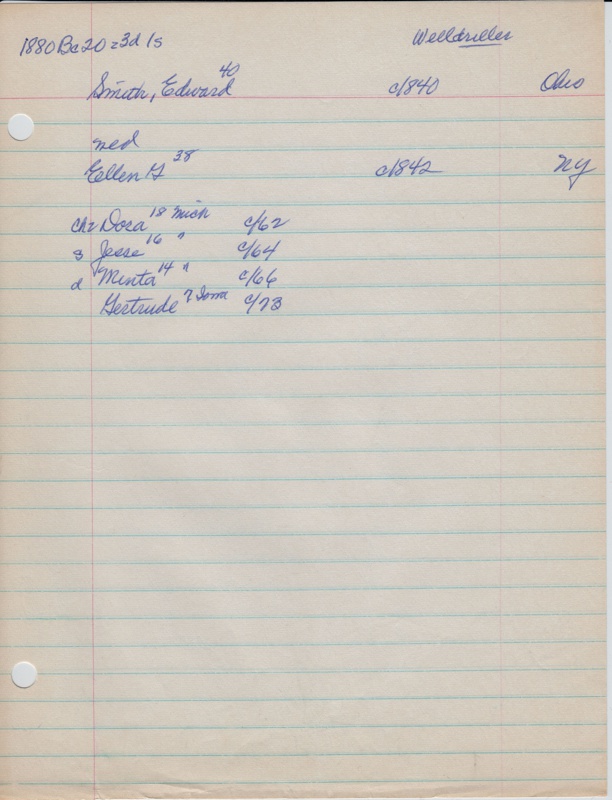 1880 Bc20 z3d 1s Welldriller
Smith, Edward 40 c/1840 Ohio
med
Ellen G 38 c/1842 NY
ch: Dora 18 Mich c/62
s Jesse 16 " c/64
d Minta 14 " c/66
Gertrude 7 Iowa c/73